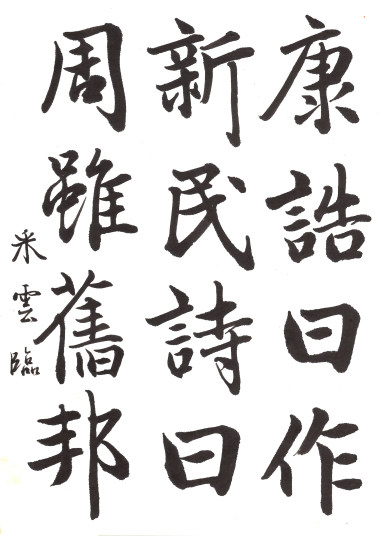 康誥曰作
新民詩曰
周雖舊邦
釆雲臨